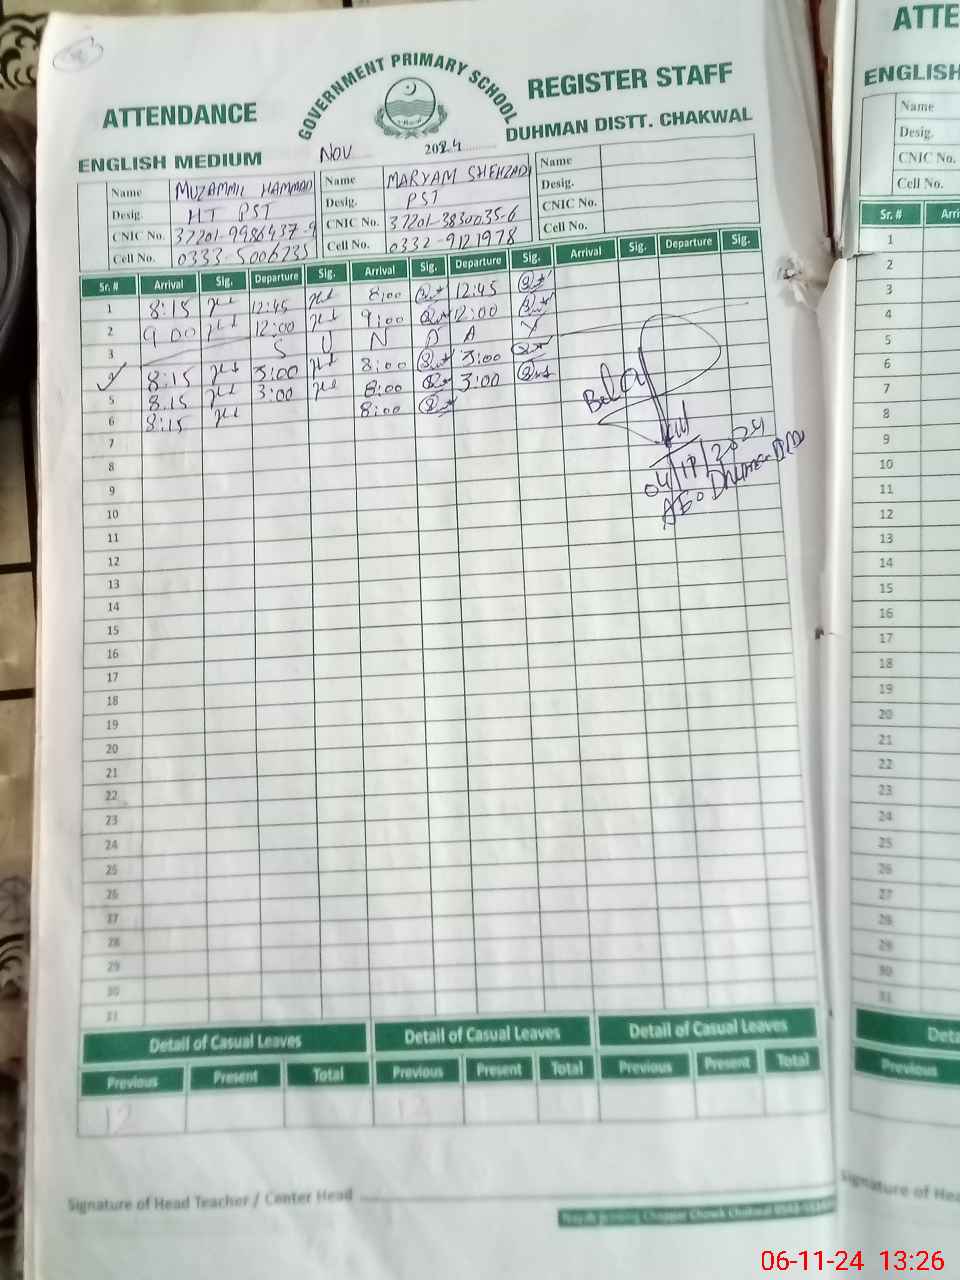 GOVERNMENT PRIMARY SCHOOL
ATTENDANCE REGISTER STAFF
ENGLISH MEDIUM Nov 2024 DUHMAN DISTT. CHAKWAL
Name MUZAMMIL HAMMAD Name MARYAM SHEHZADI Name
Desig. HT PST Desig. PST Desig.
CNIC No. 37201-9986437-9 CNIC No. 37201-3830035-6 CNIC No.
Cell No. 0333-5006235 Cell No. 0332-9121978 Cell No.
Sr. # Arrival Sig. Departure Sig. Arrival Sig. Departure Sig. Arrival Sig. Departure Sig.
1 8:15 12:45 8:00 12:45
2 9 00 12:00 9:00 12:00
3 S U N D A Y
4 8:15 3:00 8:00 3:00
5 8:15 3:00 8:00 3:00
6 8:15 8:00
7
8
9
10
11
12
13
14
15
16
17
18
19
20
21
22
23
24
25
26
27
28
29
30
31
Detail of Casual Leaves Detail of Casual Leaves Detail of Casual Leaves
Previous Present Total Previous Present Total Previous Present Total
12 12
Signature of Head Teacher / Center Head
ATTE
ENGLISH
Name
Desig.
CNIC No.
Cell No.
Sr. # Arri
1
2
3
4
5
6
7
8
9
10
11
12
13
14
15
16
17
18
19
20
21
22
23
24
25
26
27
28
29
30
31
Deta
Previous
Signature of Hea
06-11-24 13:26